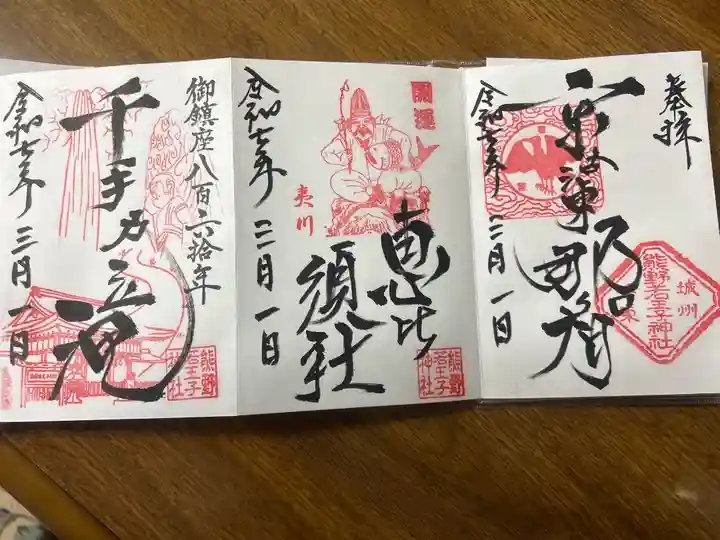 奉拝
京洛東
那智
城州
熊野若王子神社
令和七年三月一日
開運
夷川
恵比
須社
令和七年三月一日
熊野
若王子
神社
御鎮座八百六拾年
千手
滝
令和七年三月一日
熊野
若王子
神社